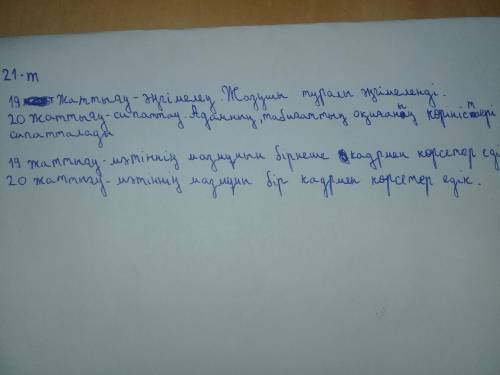 21-т
19 жаттығу-әңгімелеу. Жазушы туралы әңгімеленді.
20 жаттығу-сипаттау. Адамның, табиғаттың оқиғаның көріністері
сипатталады
19 жаттығу-мәтіннің мазмұнын бірнеше кадрмен көрсетер еді
20 жаттығу-мәтіннің мазмұнын бір кадрмен көрсетер едік.